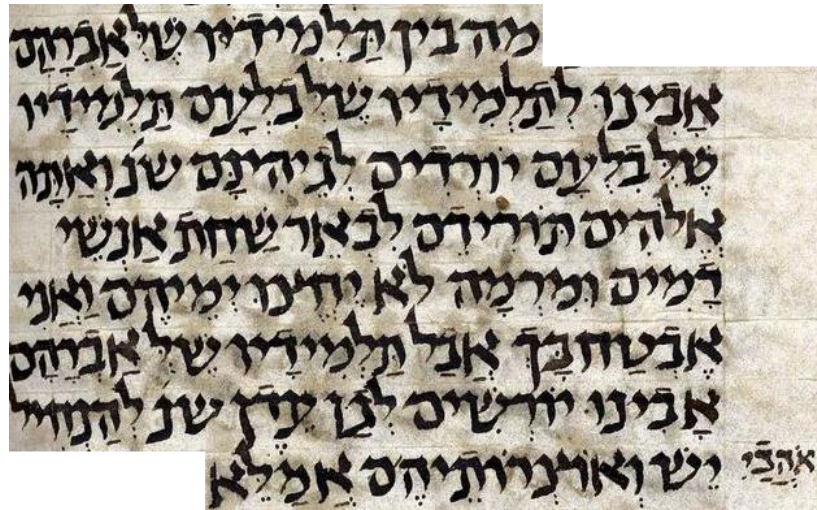 מה בין תלמידיו שלאברהם
אבינו לתלמידיו שלבלעם תלמידיו
שלבלעם יורדים לגיהינם שנ' ואתה
אלהים תורידם לבאר שחת אנשי
דמים ומרמה לא יחצו ימיהם ואני
אבטח בך אבל תלמידיו שלאברהם
אבינו יורשים לגן עדן שנ' להנחיל
אהבי יש ואוצרותיהם אמלא